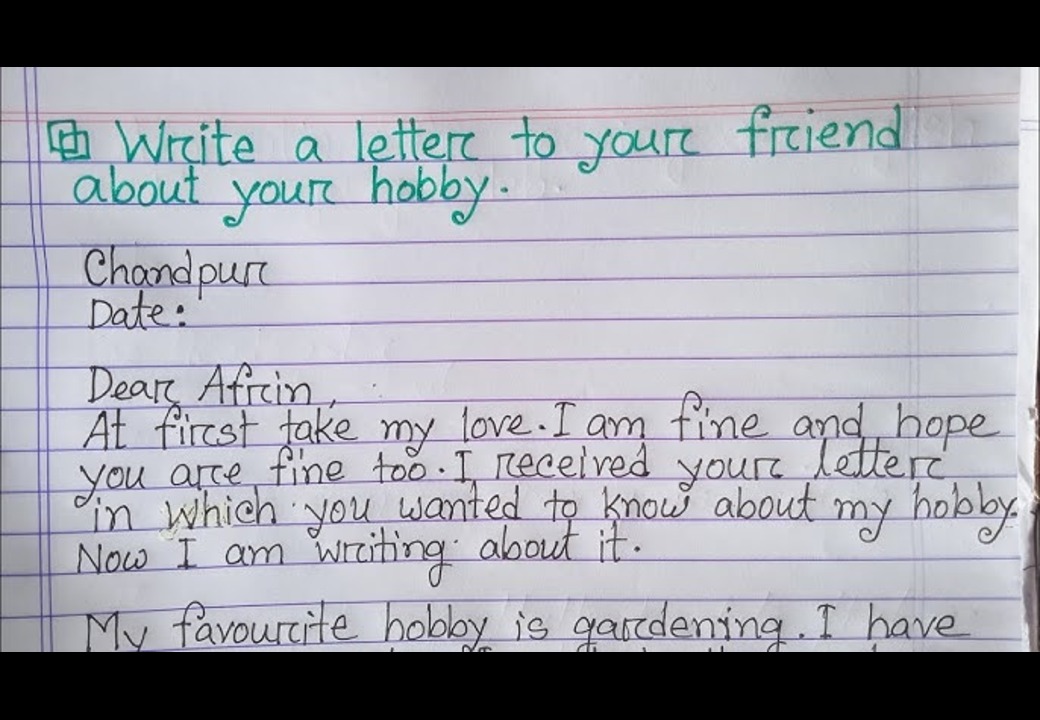 Write a letter to your friend
about your hobby.
Chandpur
Date:
Dear Afrin,
At first take my love. I am fine and hope
you are fine too. I received your letter
in which you wanted to know about my hobby.
Now I am writing about it.
My favourite hobby is gardening. I have